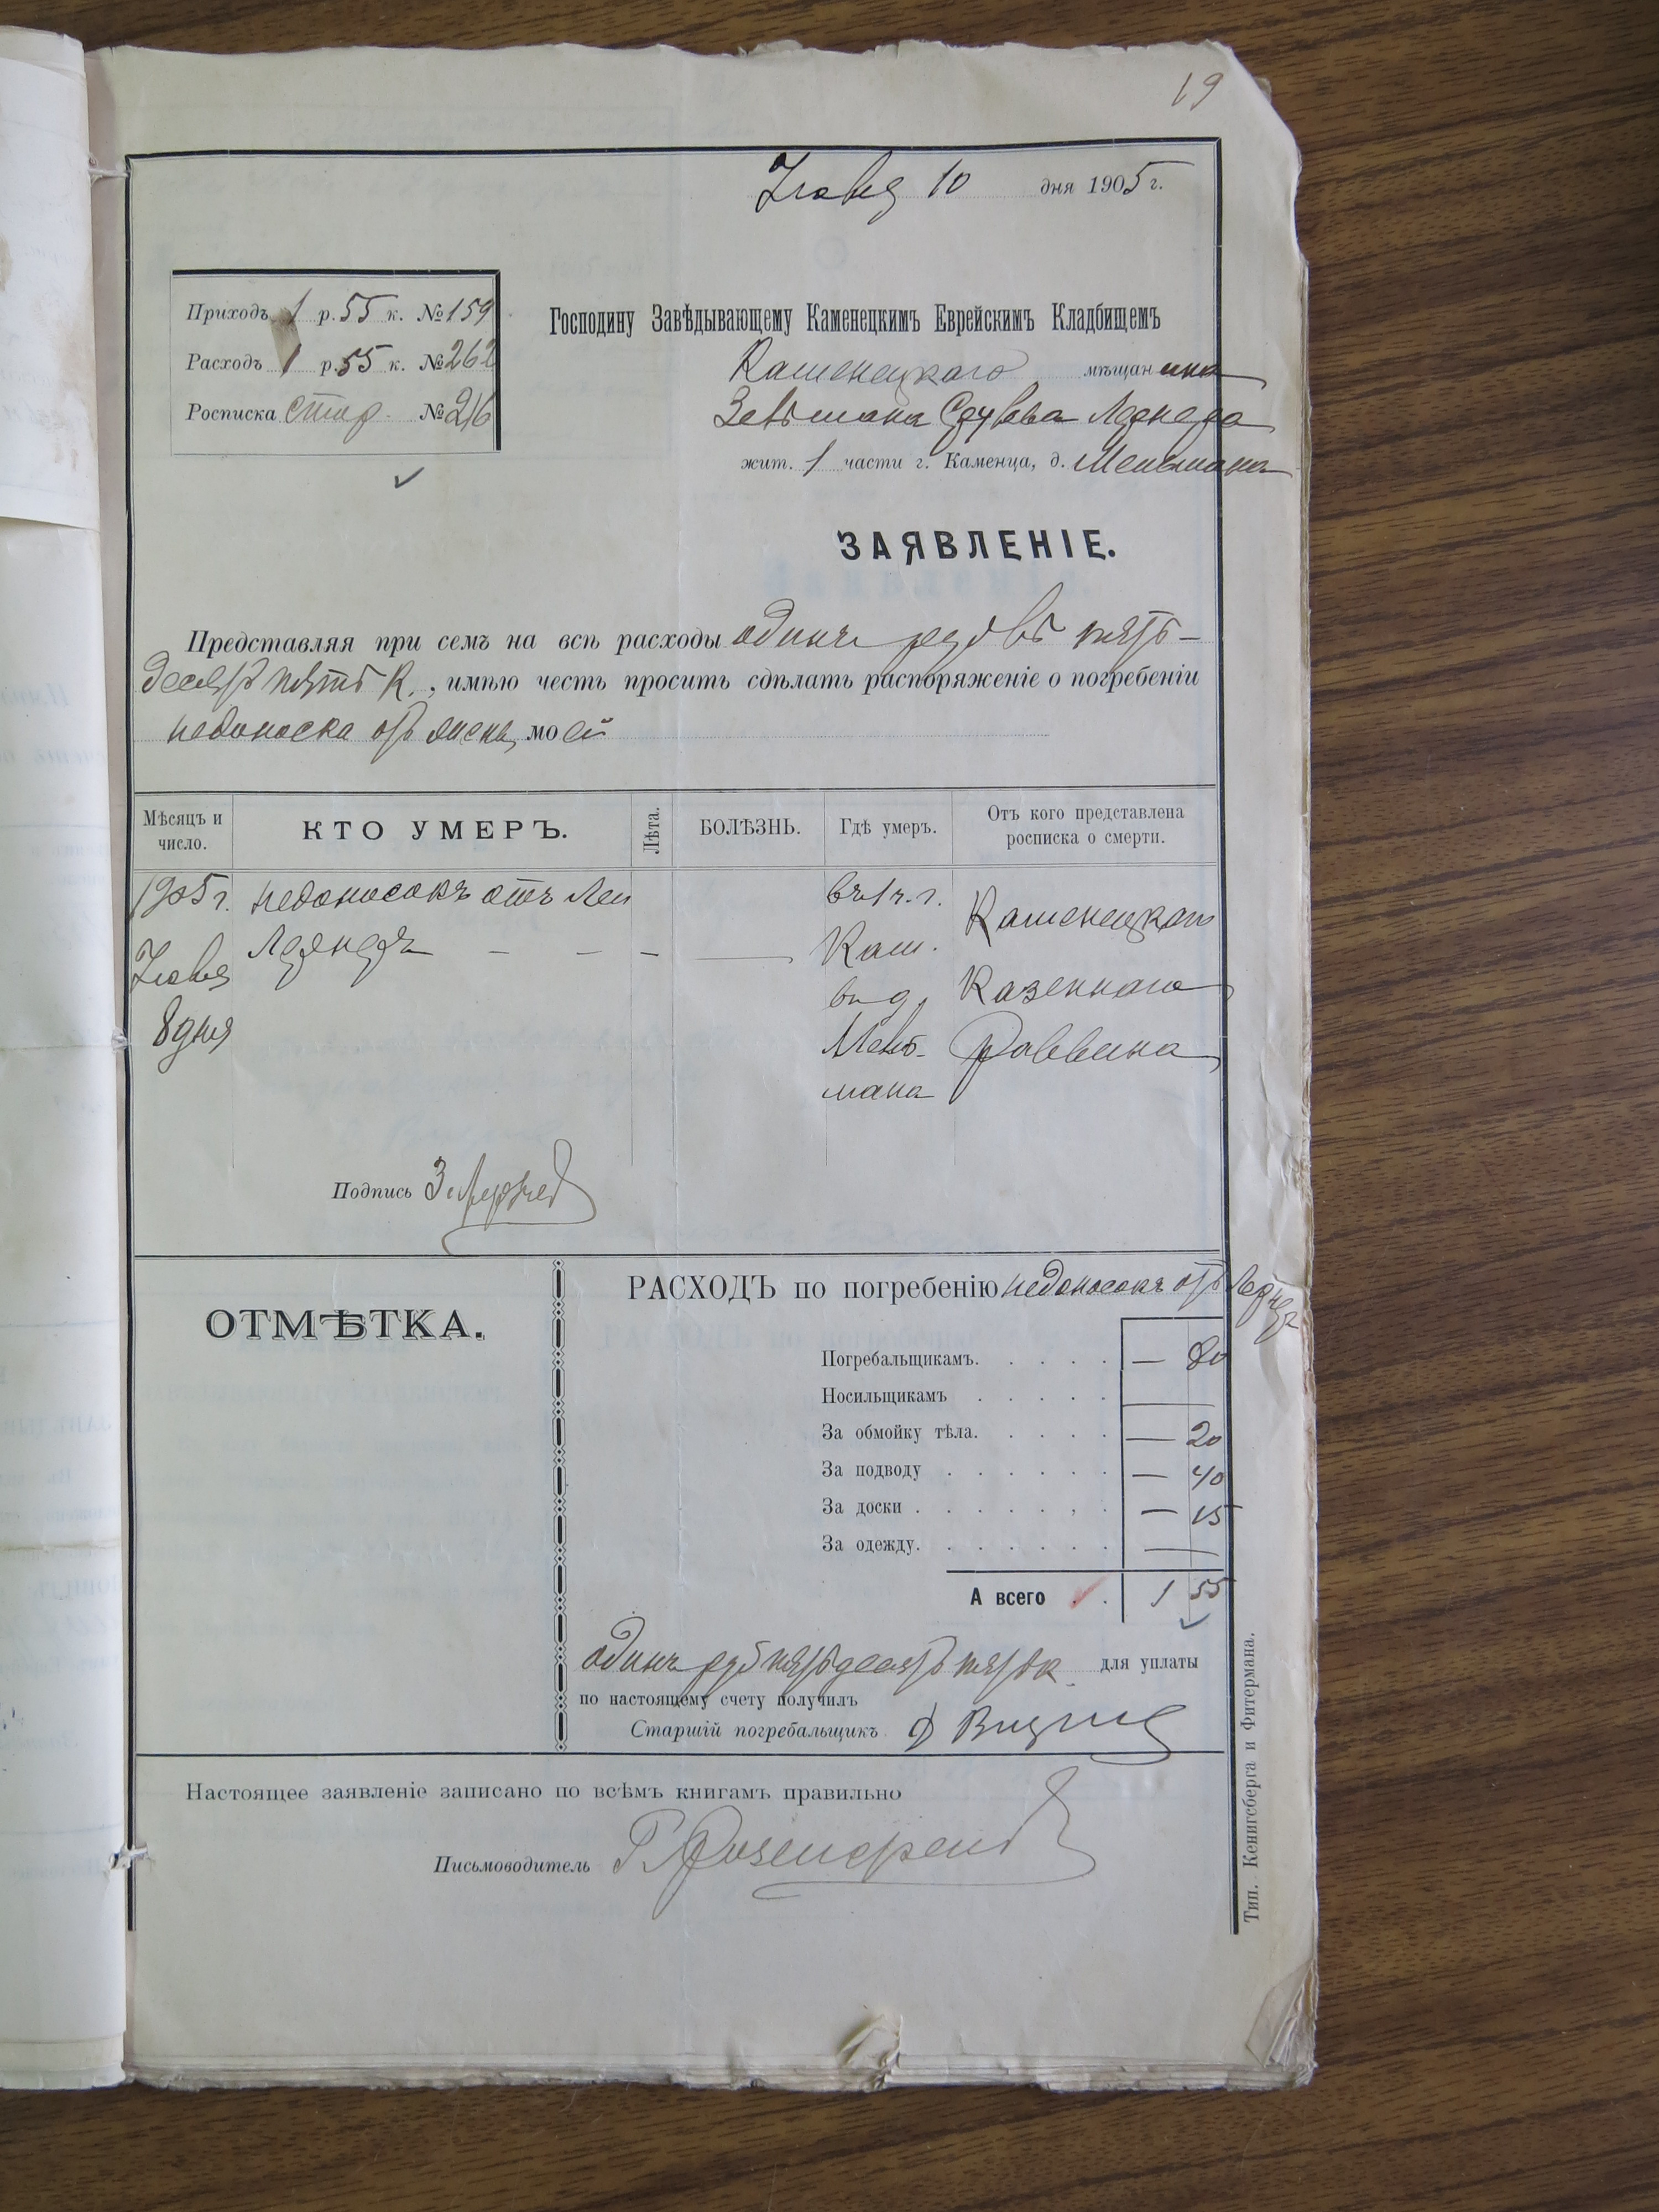 19
Iюня 10 дня 1905 г.
Приходъ 1 р. 55 к. № 159
Расходъ 1 р. 55 к. № 262
Росписка стар. № 216
Господину Завѣдывающему Каменецкимъ Еврейскимъ Кладбищемъ
Каменецкаго мѣщанина
Зельмана
жит. 1 части г. Каменца, д. Мельмана
ЗАЯВЛЕНІЕ.
Представляя при семъ на всѣ расходы одинъ рубль пять-
десятъ пять К., имѣю честь просить сдѣлать распоряженіе о погребеніи
недоноска отъ жены моей
Мѣсяцъ и число.
КТО УМЕРЪ.
Лѣта.
БОЛѢЗНЬ.
Гдѣ умеръ.
Отъ кого представлена росписка о смерти.
1905 г. недоносокъ отъ Леи въ 1 ч. г. Каменецкаго
Iюня — — — Кам.
8 дня въ д. Казеннаго
Мель- Раввина
мана
Подпись
ОТМѢТКА.
РАСХОДЪ по погребенію недоносокъ отъ
Погребальщикамъ. — 80
Носильщикамъ
За обмойку тѣла. — 20
За подводу — 40
За доски — 15
За одежду. —
А всего 1 55
одинъ руб пятьдесятъ пять к для уплаты
по настоящему счету получилъ
Старшій погребальщикъ
Настоящее заявленіе записано по всѣмъ книгамъ правильно
Письмоводитель Г. Розенфельд
Тип. Кенигсберга и Фитермана.